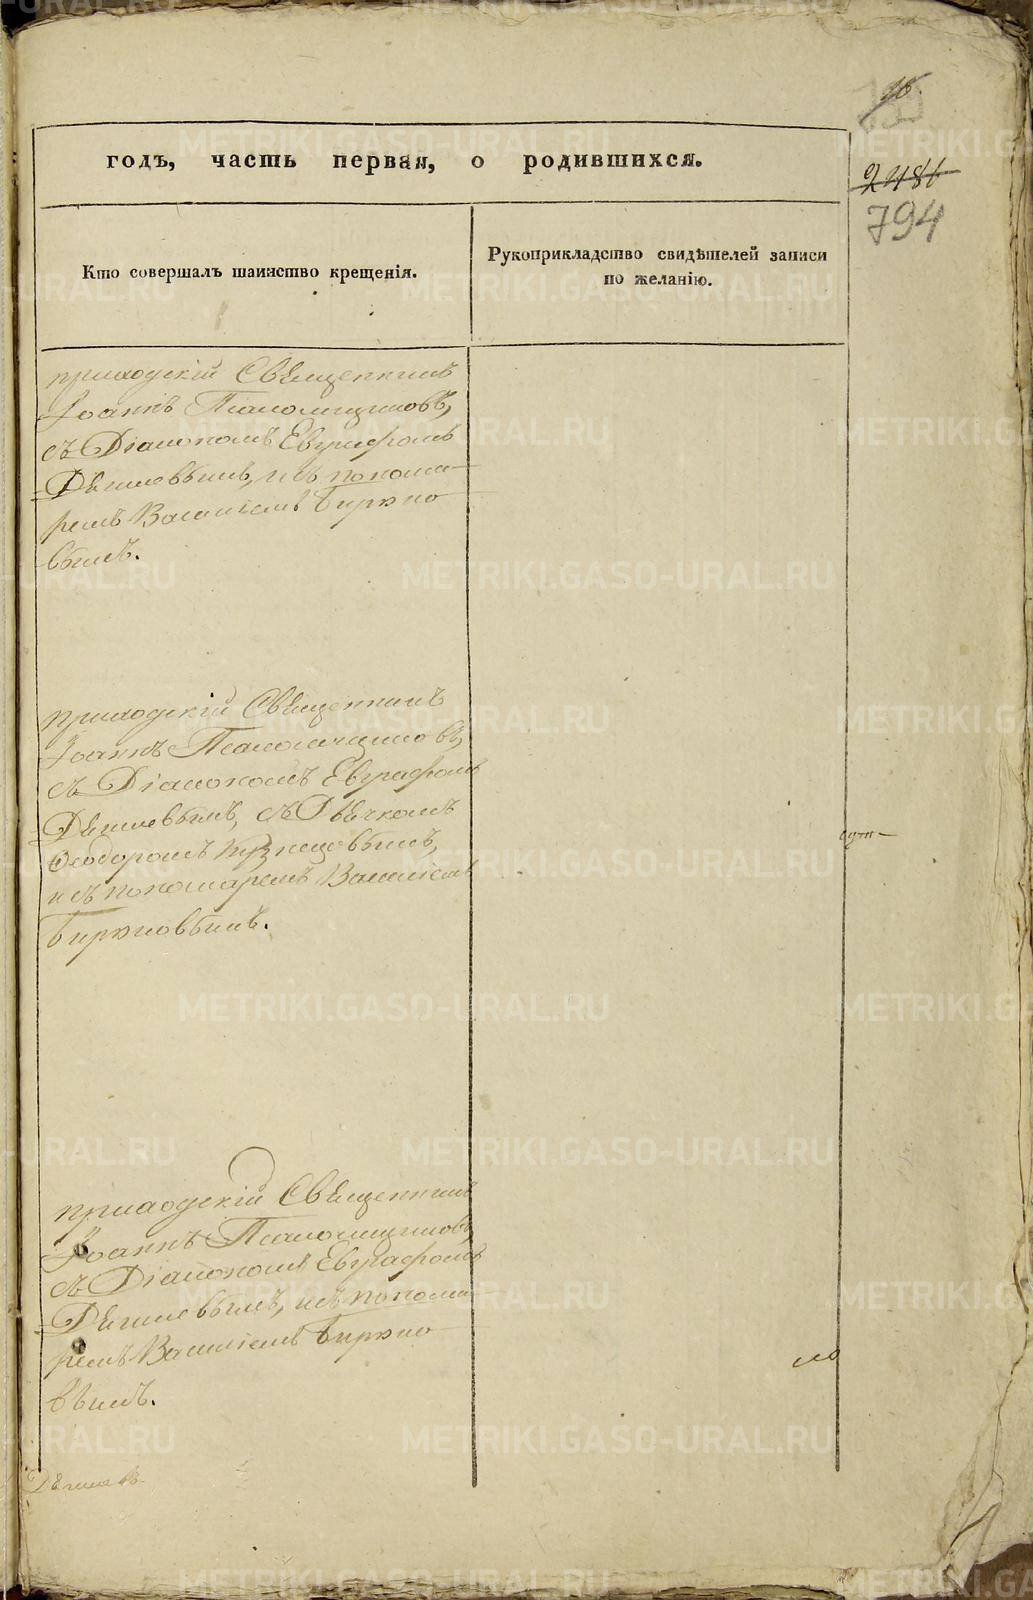 годъ, часть первая, о родившихся.
2481
794
Кто совершалъ таинство крещенія.
Рукоприкладство свидѣтелей записи
по желанію.
приходскій Священникъ
Іоаннъ Псаломщиковъ,
съ Діакономъ Евграфомъ
Дягилевымъ, и съ понома-
ремъ Василіемъ Бирюко
вымъ.
приходскій Священникъ
Іоаннъ Псаломщиковъ,
съ Діакономъ Евграфомъ
Дягилевымъ, съ Дьячкомъ
Ѳеодоромъ Кузнецовымъ,
и съ пономаремъ Василіемъ
Бирюковымъ.
приходскій Священникъ
Іоаннъ Псаломщиковъ,
съ Діакономъ Евграфомъ
Дягилевымъ, и съ понома-
ремъ Василіемъ Бирюко
вымъ.
METRIKI.GASO-URAL.RU